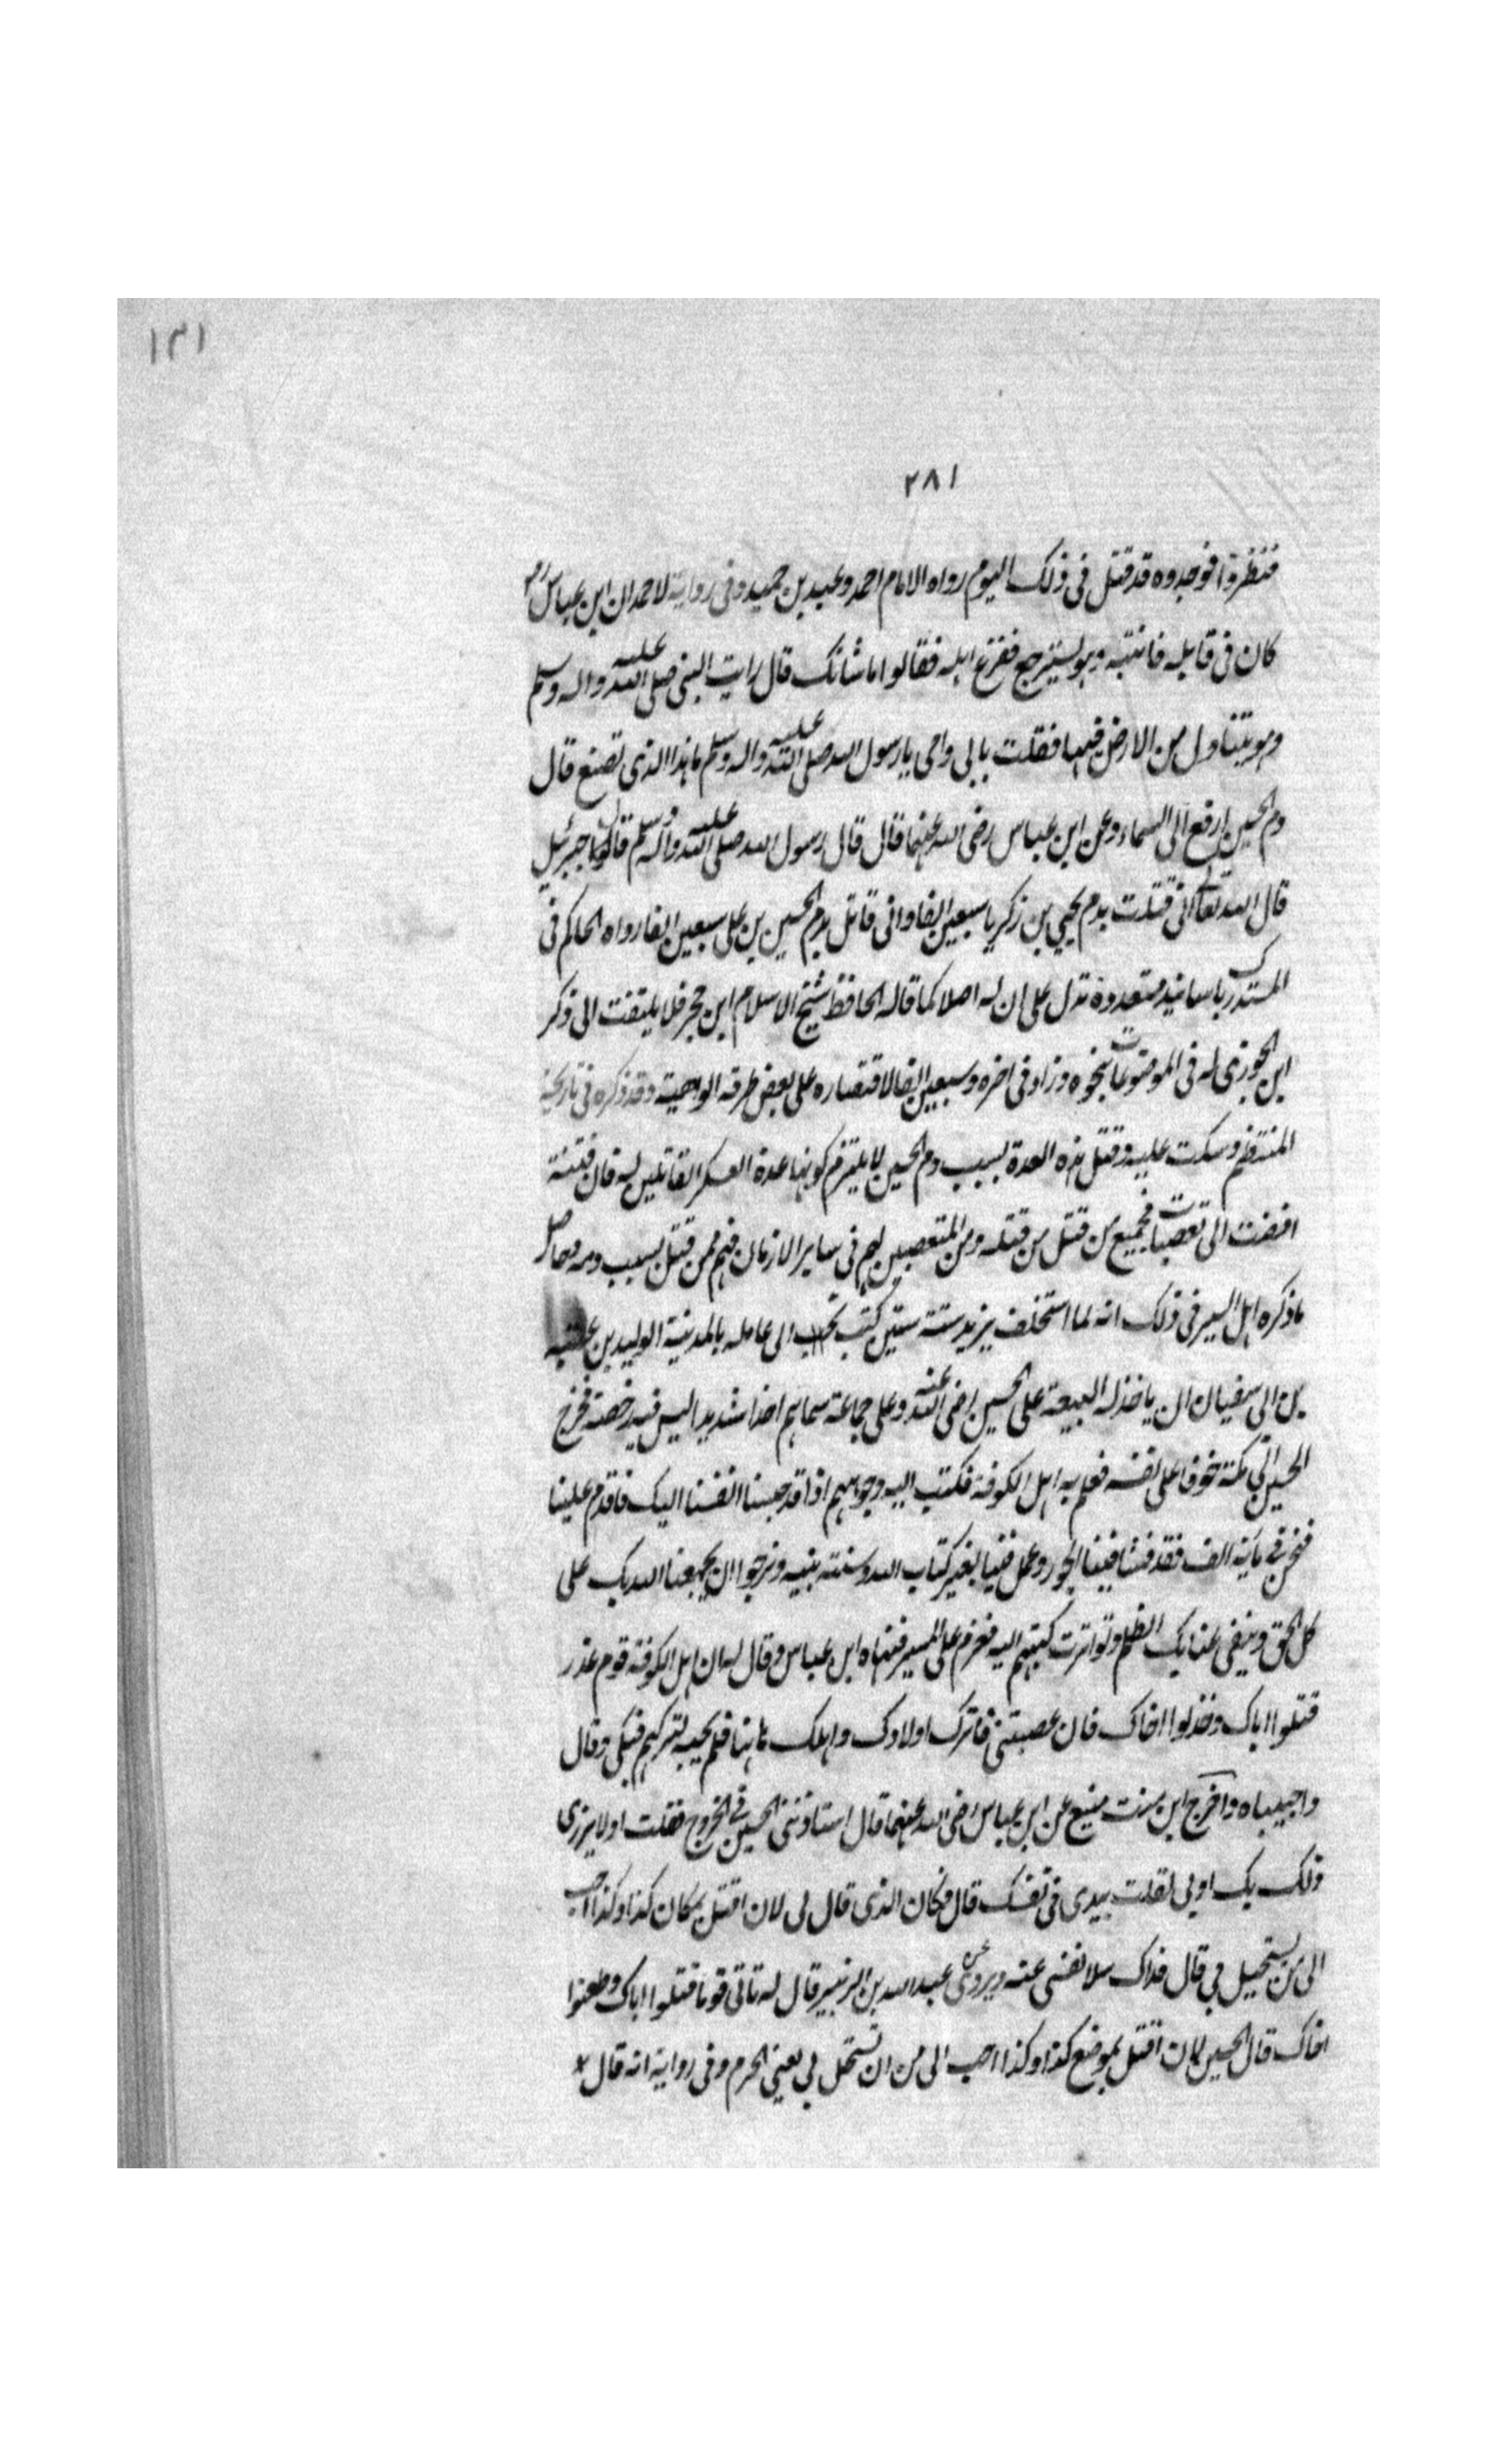 ١٣١
٢٨١
فنظروا فوجدوه قد قتل فى ذلك اليوم رواه الامام احمد وعبد بن حميد وفى رواية لاحمد ان ابن عباس رض
كان فى قايله فانتبه وهو يسترجع ففزع اهله فقالوا ما شانك قال رايت النبى صلى الله عليه واله وسلم
وهو يتناول من الارض شيئا فقلت بابى وامى يا رسول الله صلى الله عليه واله وسلم ما هذا الذى تصنع قال
دم الحسين ارفع الى السماء وعن ابن عباس رضى الله عنهما قال قال رسول الله صلى الله عليه واله وسلم قال لى جبرئيل
قال الله تعالى انى قتلت بدم يحيى بن زكريا سبعين الفا وانى قاتل بدم الحسين بن على سبعين الفا رواه الحاكم فى
المستدرك باسانيد متعددة تدل على ان له اصلا كما قاله الحافظ شيخ الاسلام ابن حجر فلا يلتفت الى ذكر
ابن الجوزى له فى الموضوعات بنحوه وزاد فى اخره وسبعين الفا لاقتصاره على بعض طرقه الواهية وقد ذكره فى تاريخه
المنتظم وسكت عليه وقتل هذه العدة بسبب دم الحسين لا يلتزم كونها عدة العسكر القاتلين له فان فتنته
افضت الى تعصبات فجميع من قتل من قتله ومن المتعصبين لهم فى ساير الازمان فهم ممن قتل بسبب دمه وحاصل
ما ذكره اهل السير فى ذلك انه لما استخلف يزيد سنة ستين كتب الى عامله بالمدينة الوليد بن عتبه
بن ابى سفيان ان ياخذ له البيعة على الحسين رضى الله عنه وعلى جماعة سماهم اخذا شديدا ليس فيه رخصة فخرج
الحسين الى مكة خوفا على نفسه فعلم به اهل الكوفة فكتب اليه وجوههم انا قد حبسنا انفسنا اليك فاقدم علينا
فنحن فى مائة الف فقد فشا فينا الجور وعمل فينا بغير كتاب الله وسنة نبيه ونرجوا ان يجمعنا الله بك على
كل الحق وينفى عنا بك الظلم وتواترت كتبهم اليه فعزم على المسير فنهاه ابن عباس وقال له ان اهل الكوفة قوم غدر
قتلوا اباك وخذلوا اخاك فان عصيتنى فاترك اولادك واهلك هاهنا فلم يجبه لتركهم فبكى وقال
واحبيباه واخرج ابن بنت منيع عن ابن عباس رضى الله عنهما قال استاذننى الحسين فى الخروج فقلت لولا يرزى
ذلك بك او بى لقلت بيدى فى نفسك قال فكان الذى قال لى لان اقتل بمكان كذا وكذا احب
الى من يستحيل بى قال فذاك سلا نفسى عنه ويروى عن عبد الله بن الزبير قال له تاتى قوما قتلوا اباك وطعنوا
اخاك قال الحسين لان اقتل بموضع كذا وكذا احب الى من ان تستحل بى يعنى الحرم وفى رواية انه قال